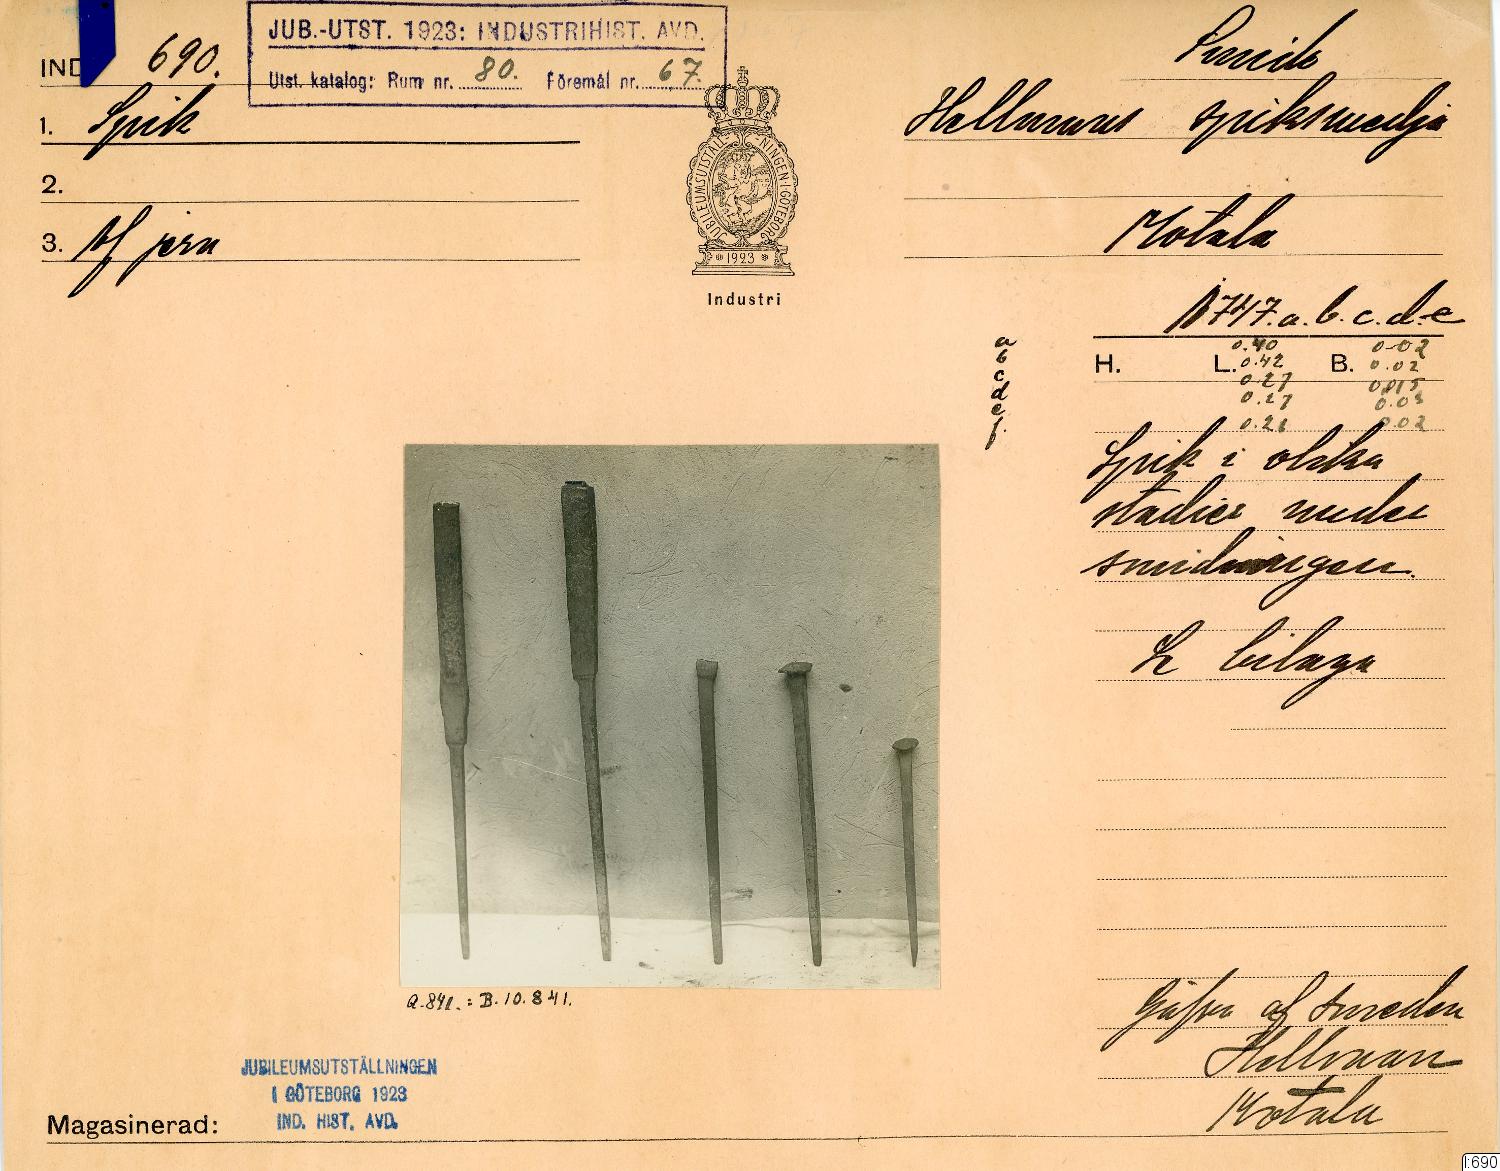 JUB.-UTST. 1923: INDUSTRIHIST. AVD.
Utst. katalog: Rum nr. 80. Föremål nr. 67.
IND 690.
1. Spik
2.
3. Af jern
JUBILEUMSUTSTÄLLNINGEN·I·GÖTEBORG
1923
Industri
Smide
Hellmans spiksmedja
Motala
1747.a.b.c.d.e
a
b
c
d
e
f.
H. L. 0.40 B. 0.02
0.42 0.02
0.27 0.015
0.27 0.03
0.21 0.02
Spik i olika
stadier under
smidningen.
Se bilaga
Gåfva af smeden
Hellman
Motala
Q.841. : B.10.841.
JUBILEUMSUTSTÄLLNINGEN
I GÖTEBORG 1923
IND. HIST. AVD.
Magasinerad:
I:690